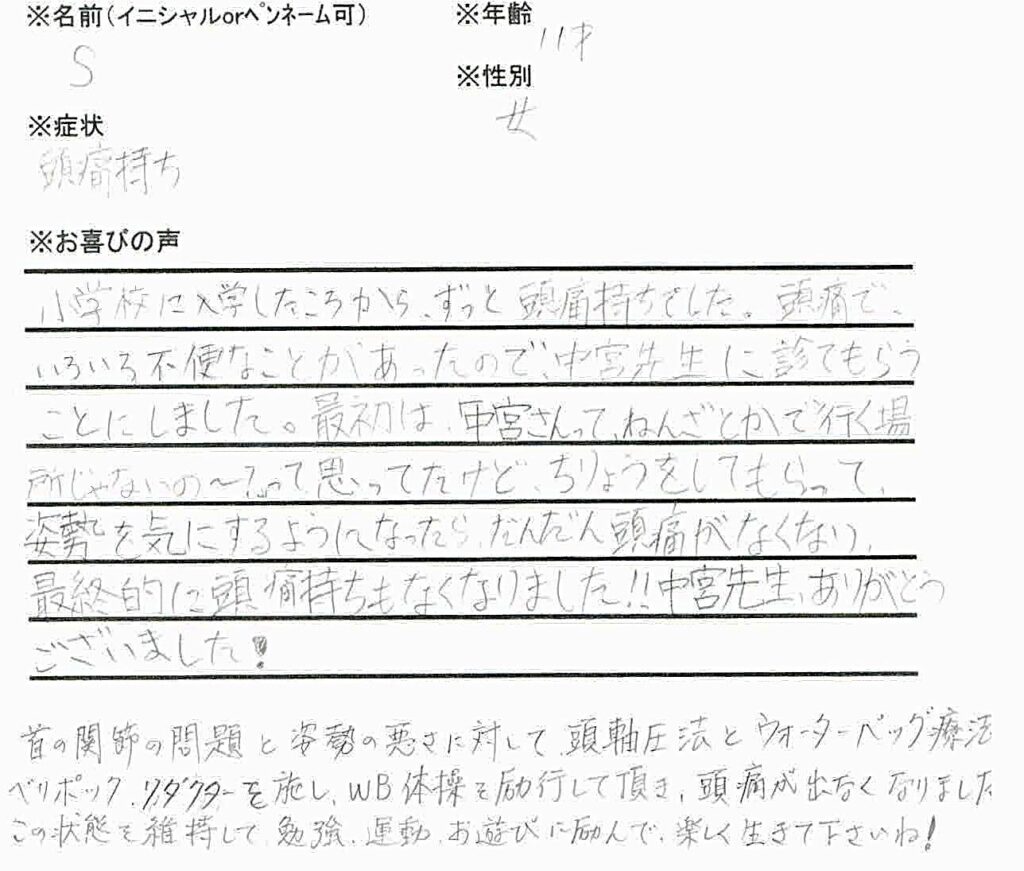 ※名前(イニシャルorペンネーム可)
※年齢
S
11才
※性別
女
※症状
頭痛持ち
※お喜びの声
小学校に入学したころから、ずっと頭痛持ちでした。頭痛で、
いろいろ不便なことがあったので、中宮先生に診てもらう
ことにしました。最初は、中宮さんって、ねんざとかで行く場
所じゃないの〜?って思ってたけど、ちりょうをしてもらって、
姿勢を気にするようになったら、だんだん頭痛がなくない、
最終的に頭痛持ちもなくなりました!!中宮先生、ありがとう
ございました!
首の関節の問題と姿勢の悪さに対して、頭軸圧法とウォーターベッグ療法
ペリポック、リダクターを施し、WB体操を励行して頂き、頭痛が出なくなりました
この状態を維持して、勉強、運動、お遊びに励んで、楽しく生きて下さいね!